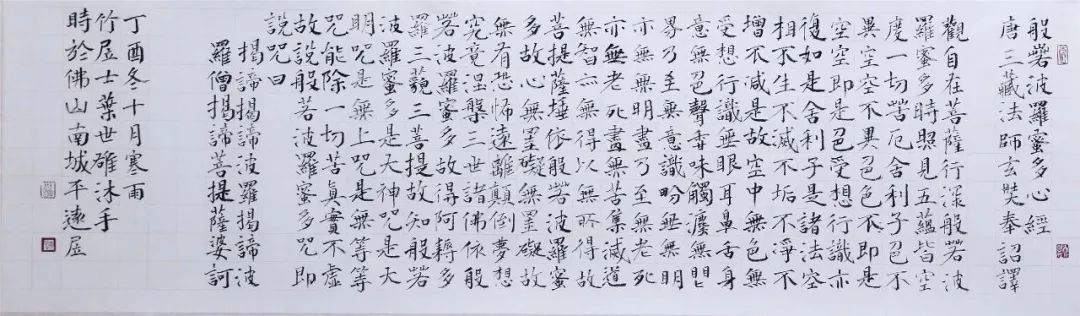 般若波羅蜜多心經
唐三藏法師玄奘奉詔譯
觀自在菩薩行深般若波
羅蜜多時照見五蘊皆空
度一切苦厄舍利子色不
異空空不異色色不即是
空空即是色受想行識亦
復如是舍利子是諸法空
相不生不滅不垢不淨不
增不減是故空中無色無
受想行識無眼耳鼻舌身
意無色聲香味觸法無眼
界乃至無意識界無無明
亦無無明盡乃至無老死
亦無老死盡無苦集滅道
無智亦無得以無所得故
菩提薩埵依般若波羅蜜
多故心無罣礙無罣礙故
無有恐怖遠離顛倒夢想
究竟涅槃三世諸佛依般
若波羅蜜多故得阿耨多
羅三藐三菩提故知般若
波羅蜜多是大神咒是大
明咒是無上咒是無等等
咒能除一切苦真實不虛
故說般若波羅蜜多咒即
說咒曰
揭諦揭諦波羅揭諦波
羅僧揭諦菩提薩婆訶
丁酉冬十月寒雨
竹居士葉世雄沐手
時於佛山南城平遠居